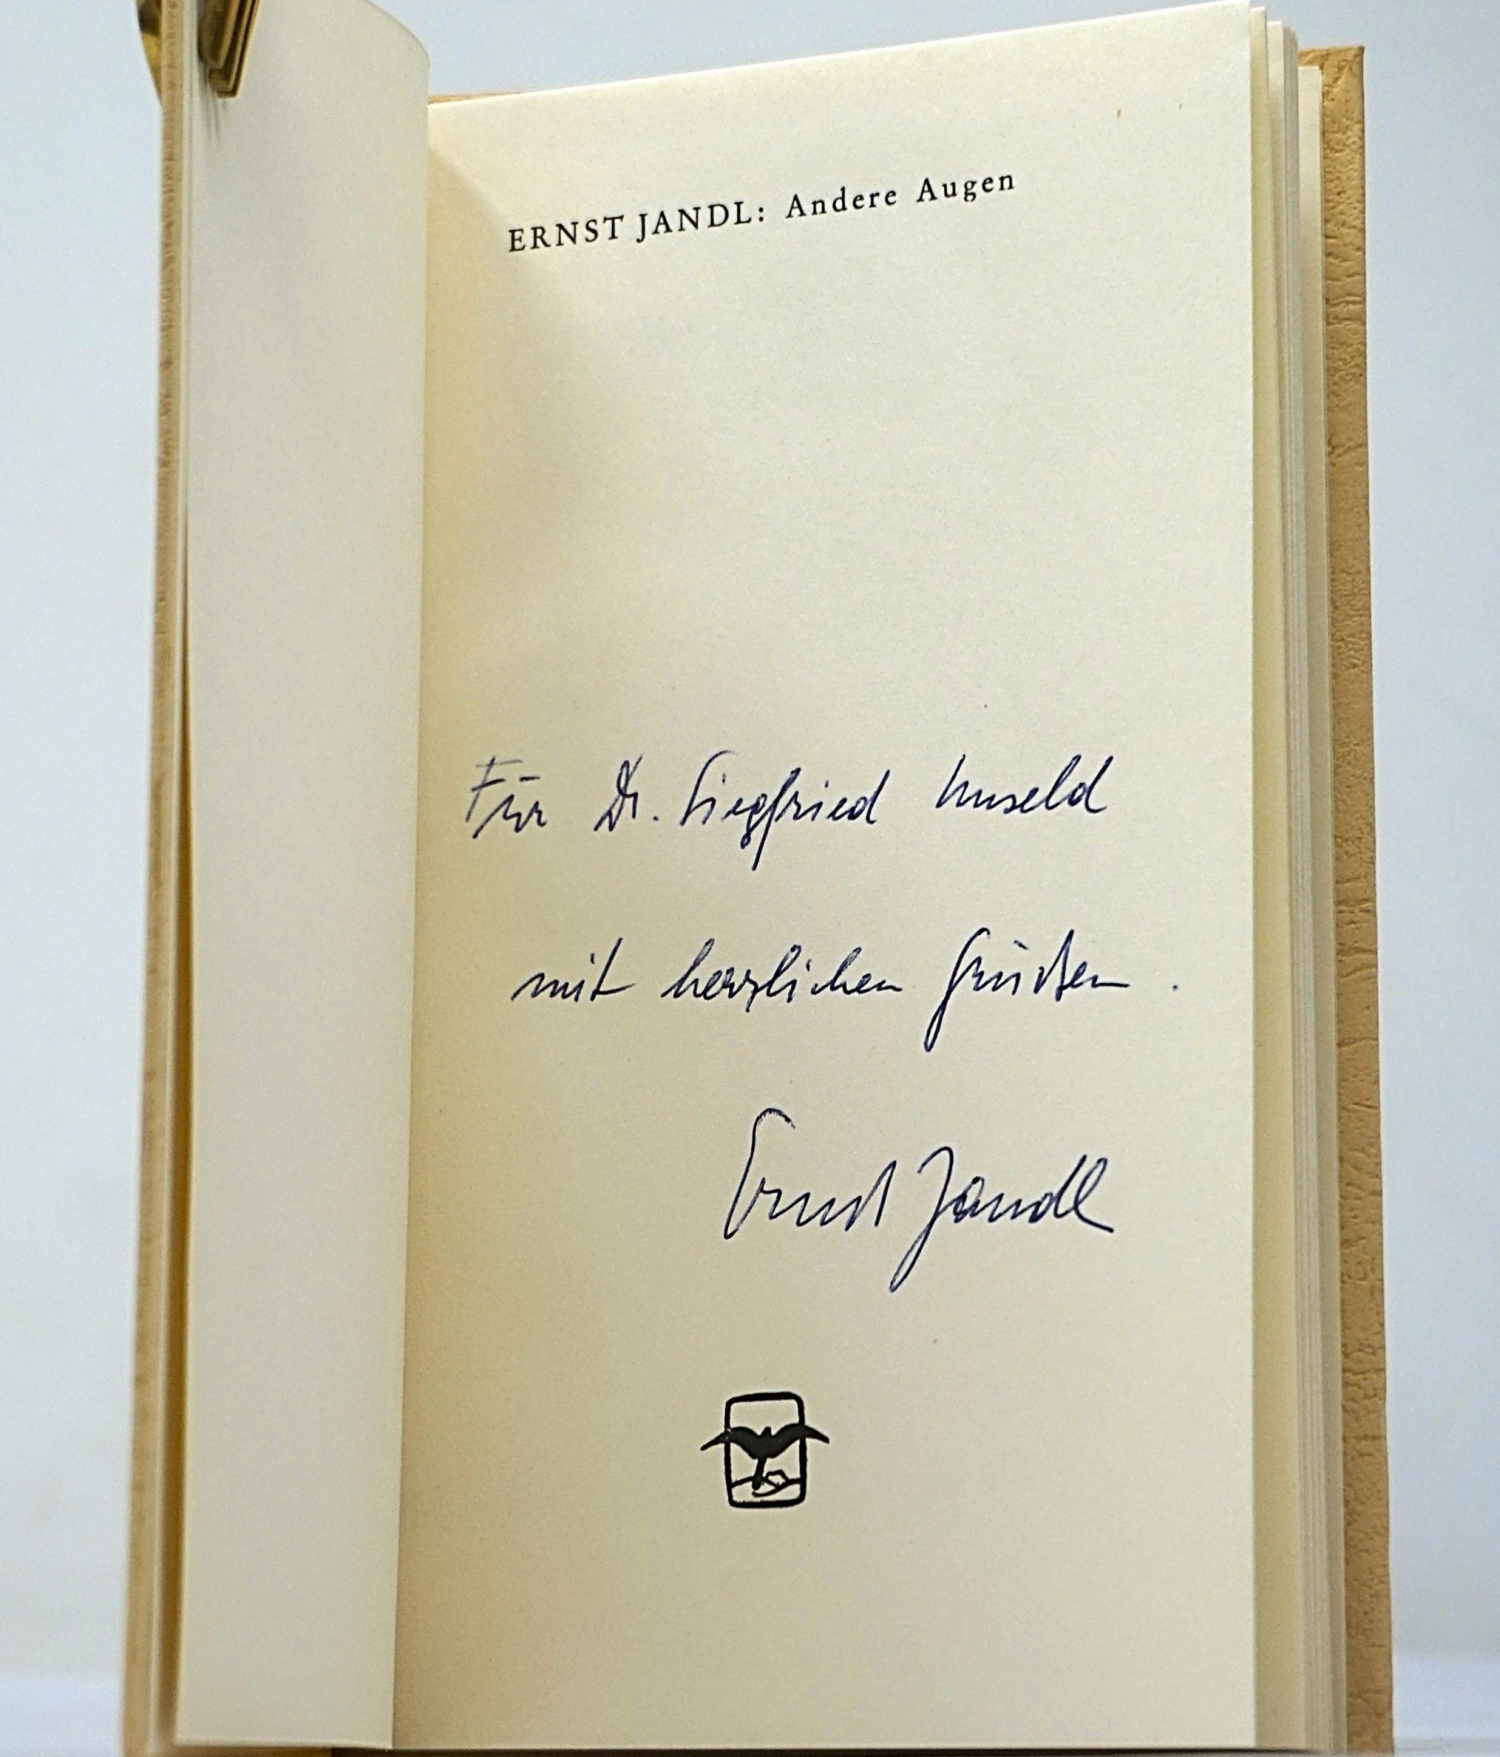 ERNST JANDL: Andere Augen
Für Dr. Siegfried Unseld
mit herzlichen Grüßen.
Ernst Jandl